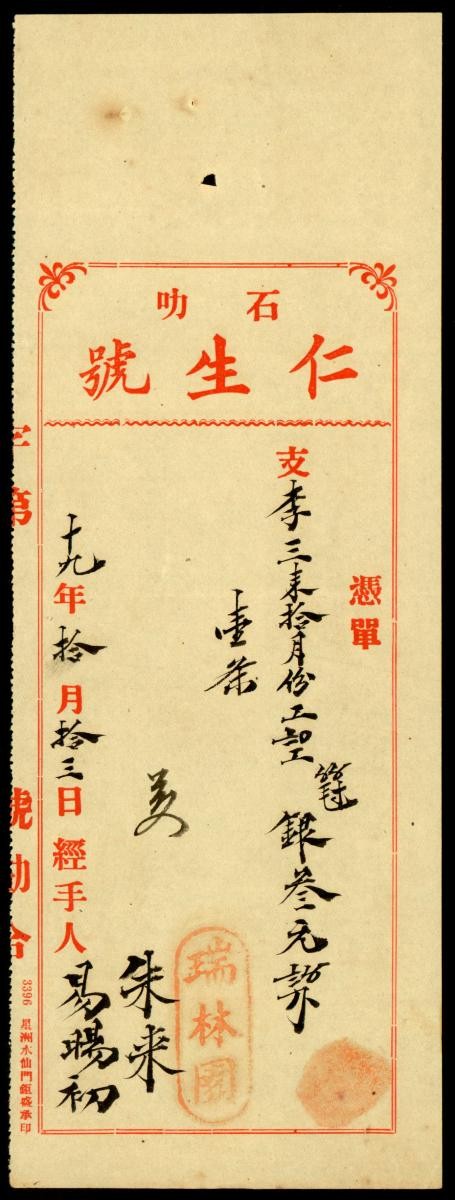 石叻
仁生號
憑單
支李三來拾月份工
銀叁元
壹条
瑞林園
朱来
十九年拾月拾三日經手人易暘初
字第 號勘合
3396 星洲水仙門鉅盛承印